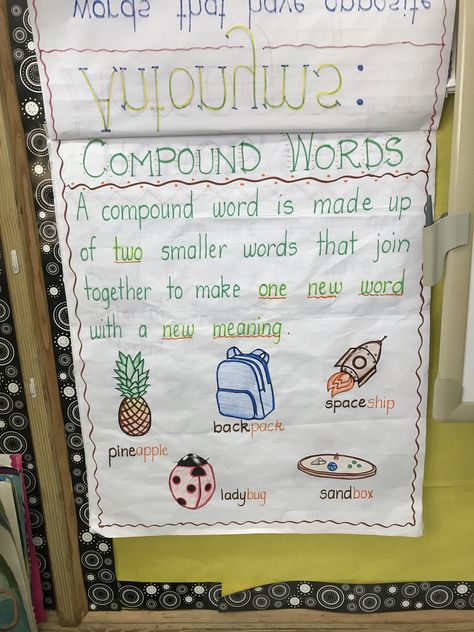 words that have opposite
Antonyms:
COMPOUND WORDS
A compound word is made up
of two smaller words that join
together to make one new word
with a new meaning.
pineapple
backpack
spaceship
ladybug
sandbox